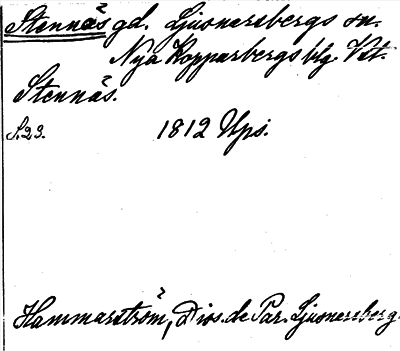 Stennäs gd. Ljusnarsbergs sn.
Nya Kopparbergs blg. Vst.
Stennäs.
S.23. 1812 Ups.
Hammarström, Dios. de Par. Ljusnarsberg.